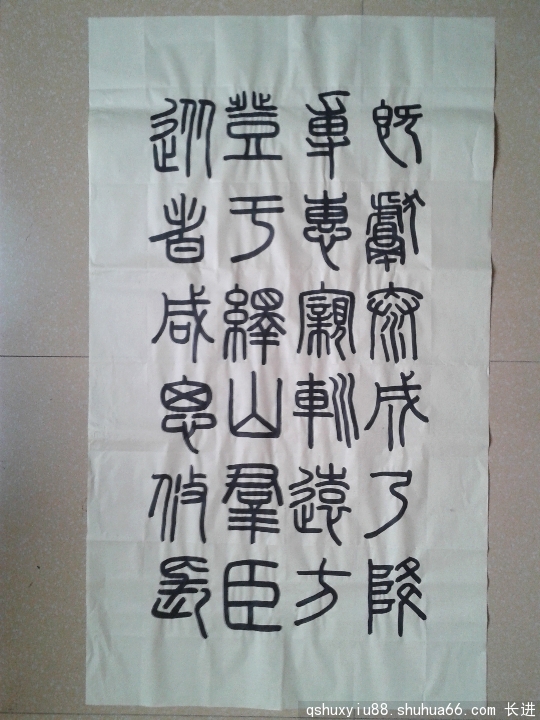 既獻泰成乃降
專惠寴䡅遠方
登于繹山羣臣
從者咸思攸長
qshuxyiu88.shuhua66.com 长进